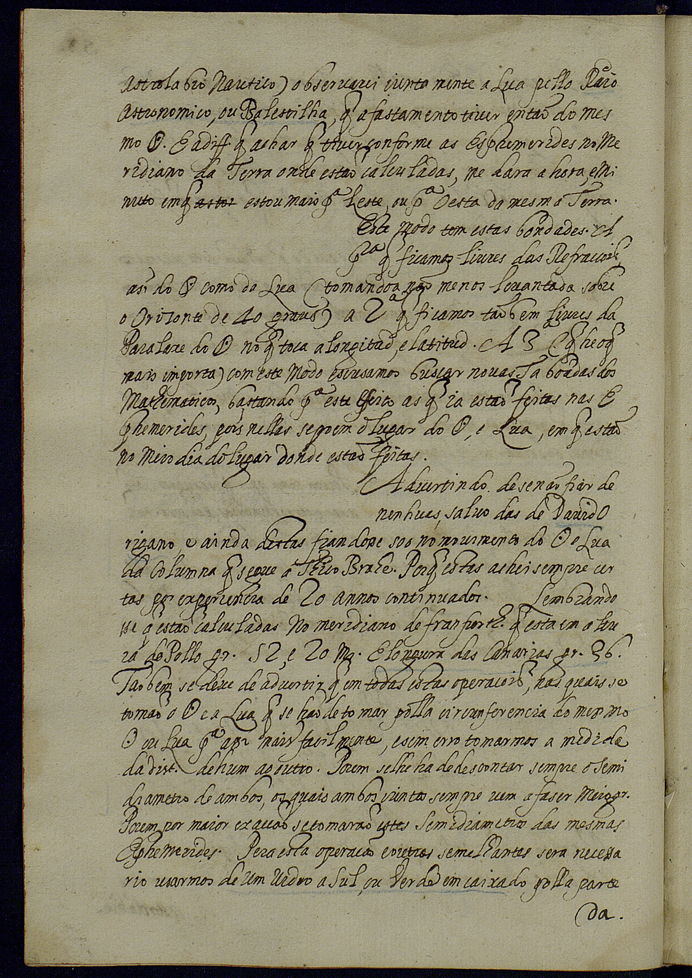 Astrolabio Nautico) observarei juntamente a Lua pello Raio
Astronomico, ou Balestilha, q̃ afastamento tiver entaõ do mes
mo ☉. E a diff.ª q̃ achar q̃ tiver conforme as Esphemerides no Me
ridiano da Terra onde estaõ calculadas, me dara a hora, e Mi
nuto em q̃ estou mais p.ª Leste, ou p.ª Oesta da mesma Terra.
Este modo tem estas bondades. A
pr.ª q̃ ficamos livres das Refraçoiẽs
asi do ☉ como da Lua (tomandoa naõ menos levantada sobre
o Orizonte de 40 graus) a 2.ª q̃ ficamos taõbem livres da
Paralaxe do ☉ no q̃ toca a longitud, e latitud. A 3.ª (q̃ he o q̃
mais importa) com este Modo escusamos buscar novas Taboadas dos
Mathematicos, bastando p.ª este effeito as q̃ ia estaõ feitas nas E
phemerides, pois nellas se poem o lugar do ☉, e Lua, em q̃ estaõ
no Meio dia do lugar donde estaõ feitas.
Advertindo, de se naõ fiar de
nenhuas, salvo das de David O
rigano, e ainda destas fiandose so no movimento do ☉ e Lua
da Columna q̃ segue a Thico Brahe. Porq̃ estas achei sempre cer
tas por experiencia de 20 annos continuados. Lembrando
se q̃ estaõ calculadas no meridiano de Franforte, q̃ esta em altu
ra de Pollo gr. 52 e 20 m. E longura das Canarias gr. 36.
Taõbem se deve de advertir q̃ em todas estas operaçoiẽs, nas quais se
tomaõ o ☉ e a Lua q̃ se haõ de tomar pella circunferencia do mesmo
☉ ou Lua p.ª mais facilmente, e sem erro tomarmos a medida
da dist.ª de hum ao outro. Porem se lhe ha de descontar sempre o Semi
diametro de ambos, os quais ambos juntos sempre vem a faser Meio gr.
Porem por maior exacçaõ se tomaraõ estes Semidiametros das mesmas
Ephemerides. Pera esta operaçaõ e outras semelhantes sera necessa
rio usarmos de um vidro asul, ou verde emcaixado pella parte
da.